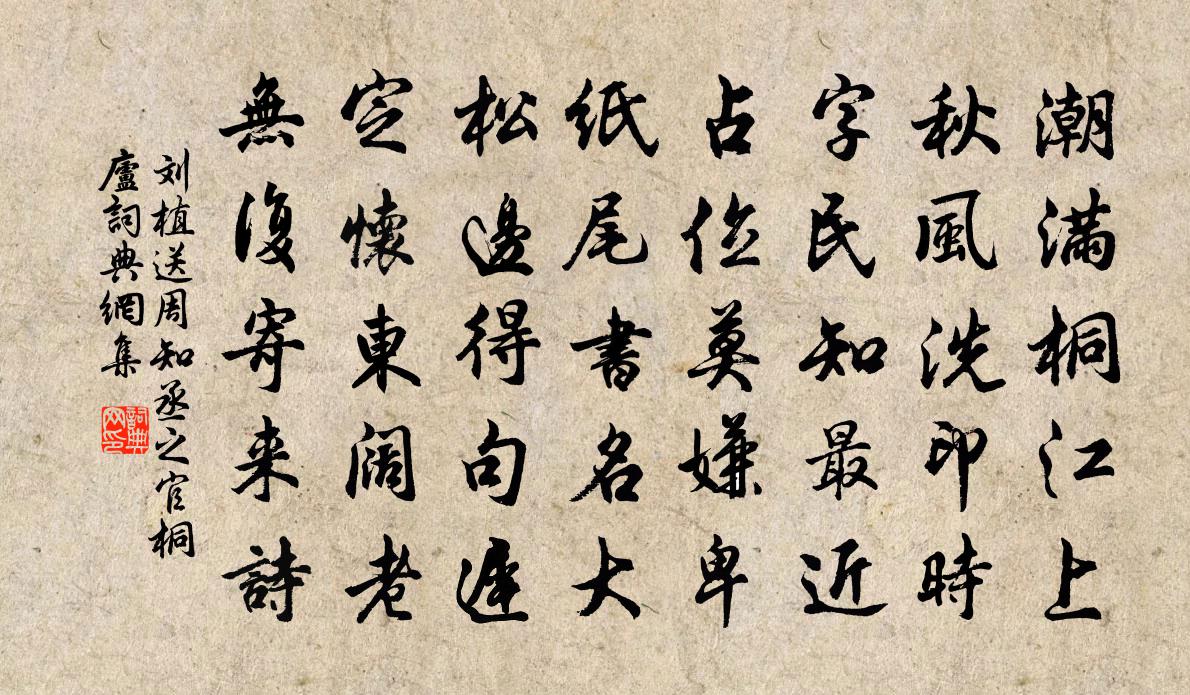 潮满桐江上
秋風洗印時
字民知最近
占位莫嫌卑
纸尾書名大
松邊得句遲
定懷東阔老
無復寄来詩
刘植送周知丞之官桐
廬詞典網集
詞典
网印